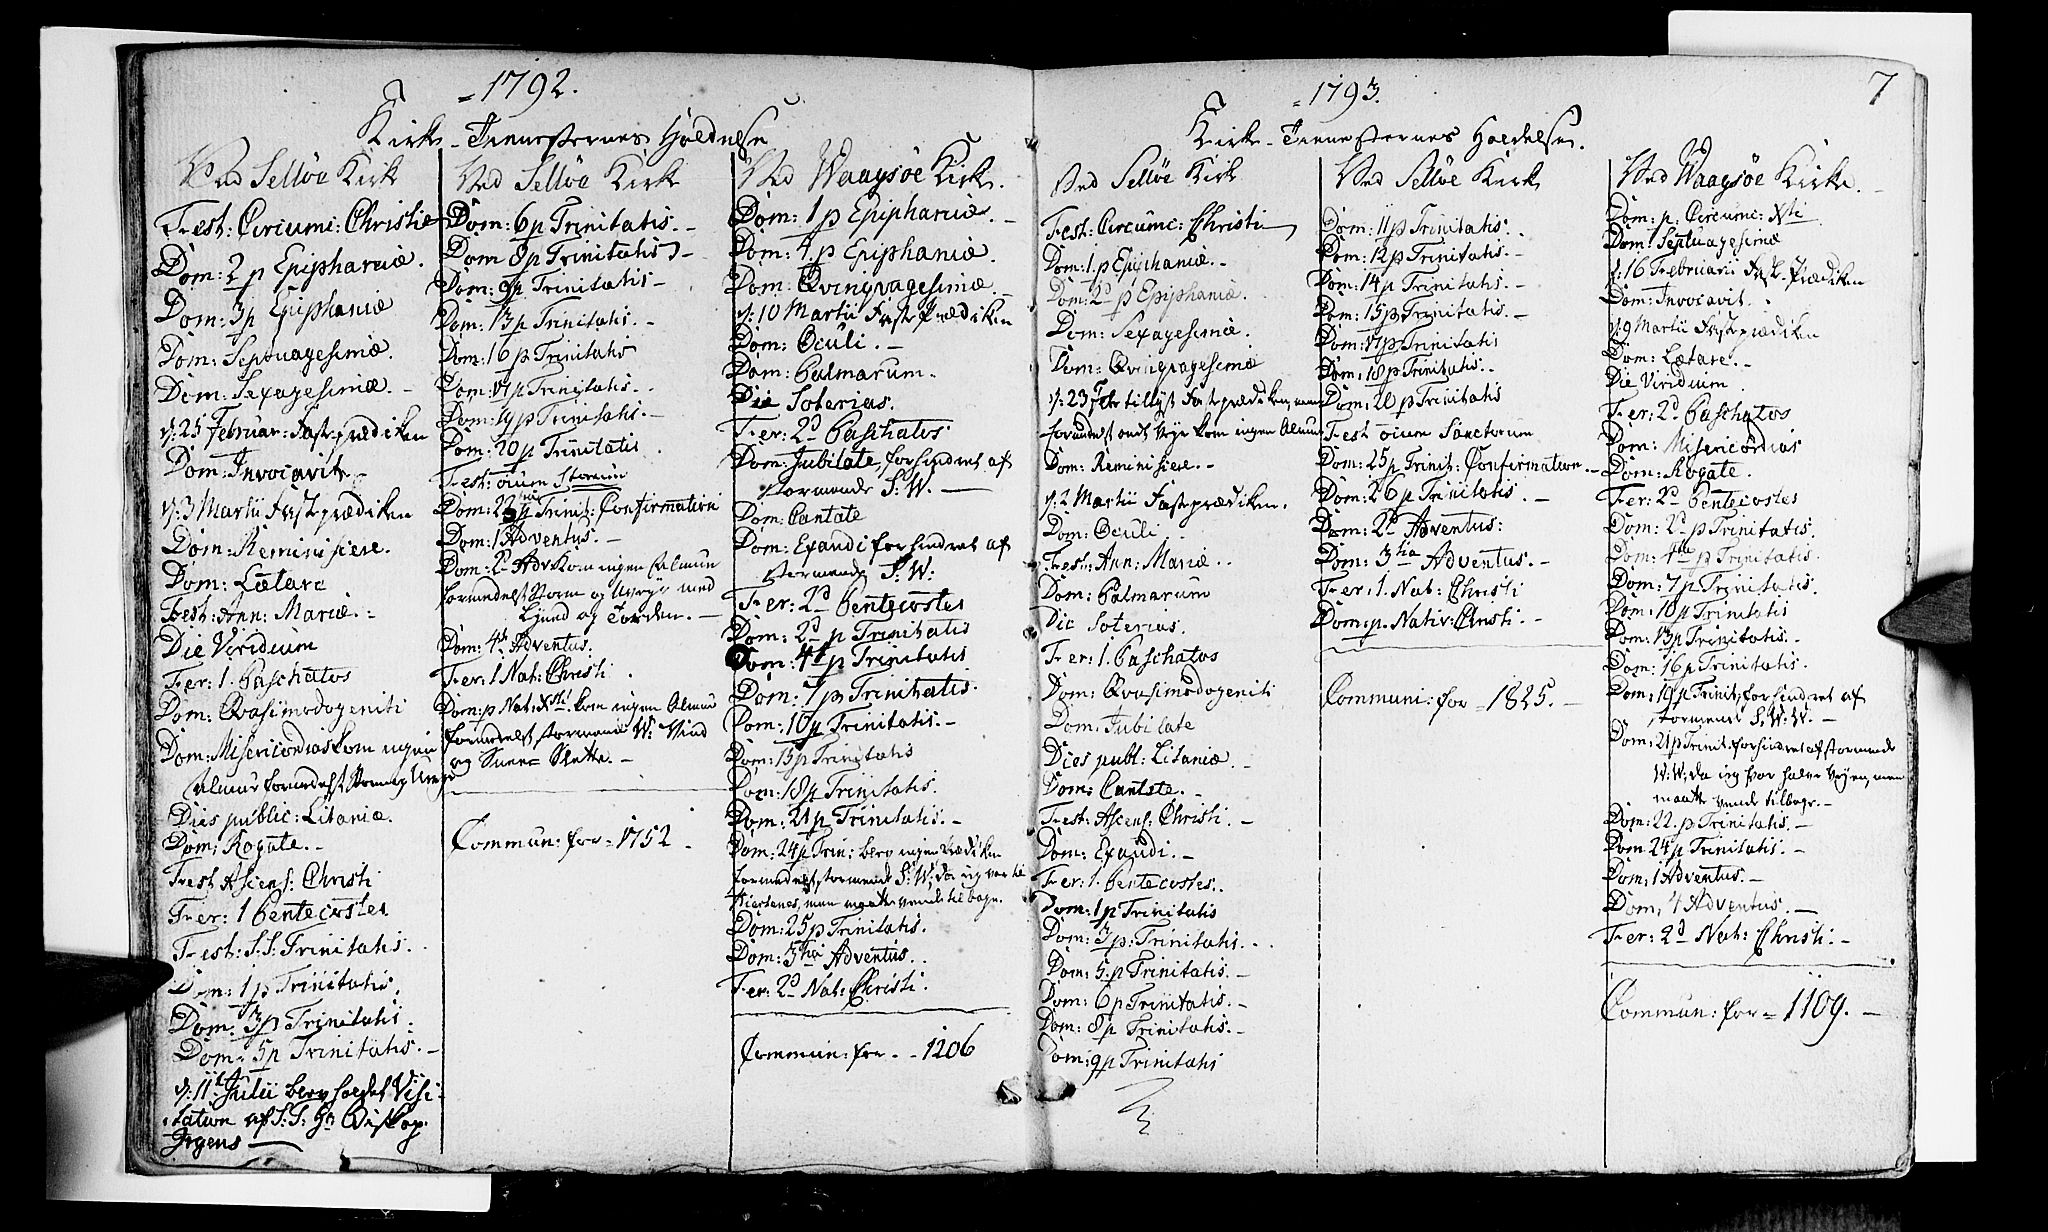 1792.
Kirke-Tienesternes Holdelse
Ved Selløe Kirke
Fest: Circumc: Christie
Dom: 2 p Epiphaniæ.
Dom: 3 p Epiphaniæ
Dom: Septuagesimæ.
Dom: Sexagesimæ. -
d: 25 Februar: Fasteprædiken
Dom: Invocavit. -
d: 3 Martii Fasteprædiken
Dom: Reminiscere.
Dom: Lætare
Fest: Ann: Mariæ. -
Die Viridium
Fer: 1. Paschatos
Dom: Qvasimodogeniti
Dom: Misericordias kom ingen
Almue formedelst Storm og
Dies public: Litaniæ.
Dom: Rogate. -
Fest Ascens: Christi
Fer: 1 Pentecostes
Fest: S: S: Trinitatis.
Dom: 1 p Trinitatis.
Dom: 3 p Trinitatis.
Dom: 5 p Trinitatis. -
d: 11te Julii blev holdet Visi-
tation af S: T: Hr Biskop
Irgens
Ved Selløe Kirke
Dom: 6 p Trinitatis. -
Dom 8 p Trinitatis -
Dom: 9 p Trinitatis -
Dom: 13 p Trinitatis. -
Dom: 16 p Trinitatis
Dom: 17 p Trinitatis.
Dom: 19 p Trinitatis. -
Dom: 20 p Trinitatis
Fest: oium Storum
Dom: 23 p Trinit: Confirmation
Dom: 1 Adventus. -
Dom: 2d Adv: kom ingen Almue
formedelst Storm og Uveyr med
Liund og Torden. -
Dom: 4te Adventus.
Fer: 1 Nat: Christi
Dom: p Nat: Xsti kom ingen Almue
formedelst stormende W: Vind
og Snee-Slette. -
Commun: for 1752.
Ved Waagsøe Kirke.
Dom: 1 p Epiphaniæ. -
Dom: 4 p Epiphaniæ.
Dom: Qvinqvagesimæ. -
d: 10 Martii Fasteprædiken
Dom: Oculi. -
Dom: Palmarum.
Die Soterias.
Fer: 2d Paschatos
Dom: Jubilate, forhindret af
stormende S: W. -
Dom: Cantate
Dom: Exaudi forhindret af
stormende S: W:
Fer: 2d Pentecostes
Dom: 2d p Trinitatis
Dom: 4 p Trinitatis
Dom: 7 p Trinitatis.
Dom: 10 p Trinitatis. -
Dom: 15 p Trinitatis
Dom: 18 p Trinitatis.
Dom: 21 p Trinitatis. -
Dom: 24 p Trin: blev ingen Prædiken
formedelst stormende S: W, da jeg var til
men maatte vende tilbage.
Dom: 25 p Trinitatis.
Dom: 3tia Adventus.
Fer: 2d Nat: Christi.
Commun: for - 1206
7
1793.
Kirke-Tienesternes Holdelse.
Ved Selløe Kirke
Fest: Circumc: Christi
Dom: 1 p Epiphaniæ. -
Dom: 2d p Epiphaniæ.
Dom: Sexagesimæ.
Dom: Qvinqvagesimæ
d: 23 Febr tillyst Fasteprædiken, men
formedelst ondt Veyr kom ingen Almue
Dom: Reminiscere. -
d: 2 Martii Fasteprædiken.
Dom: Oculi.
Fest: Ann: Mariæ.
Dom: Palmarum
Die Soterias.
Fer: 1. Paschatos
Dom: Qvasimodogeniti
Dom: Jubilate
Dies publ: Litaniæ.
Dom: Cantate. -
Fest: Ascens: Christi. -
Dom: Exaudi. -
Fer: 1. Pentecostes.
Dom: 1 p Trinitatis
Dom: 3 p: Trinitatis.
Dom: 5. p Trinitatis. -
Dom: 6 p Trinitatis. -
Dom: 8 p Trinitatis. -
Dom: 9 p Trinitatis
Ved Selløe Kirke
Dom: 11 p Trinitatis.
Dom: 12 p Trinitatis. -
Dom: 14 p Trinitatis. -
Dom: 15 p Trinitatis. -
Dom: 17 p Trinitatis
Dom: 18 p Trinitatis.
Dom: 20 p Trinitatis
Fest oium Sanctorum
Dom: 25 p Trinit: Confirmation. -
Dom: 26 p Trinitatis. -
Dom: 2d Adventus:
Dom: 3tia Adventus. -
Fer: 1. Nat: Christi
Dom: p. Nativ: Christi. -
Communi: for 1825. -
Ved Waagsøe Kirke. -
Dom: p. Circumc: Xti
Dom: Septuagesimæ
d: 16 Februarii Faste-Prædiken
Dom: Invocavit.
d: 9 Martii Fasteprædiken
Dom: Lætare. -
Die Viridium
Fer: 2d Paschatos
Dom: Misericordias
Dom: Rogate.
Fer: 2d Pentecostes
Dom: 2d p Trinitatis.
Dom: 4te p Trinitatis.
Dom: 7 p Trinitatis.
Dom: 10 p Trinitatis
Dom: 13 p Trinitatis. -
Dom: 16 p Trinitatis.
Dom: 19 p Trinit, forhindret af
stormende S. W. W. -
Dom: 21 p Trinit. forhindret af stormende
W: W: da jeg var halv Veyen, men
maatte vende tilbage. -
Dom: 22. p Trinitatis. -
Dom: 24 p Trinitatis. -
Dom: 1 Adventus. -
Dom: 4 Adventus. -
Fer: 2d Nat: Christi. -
Commun: for = 1109. -